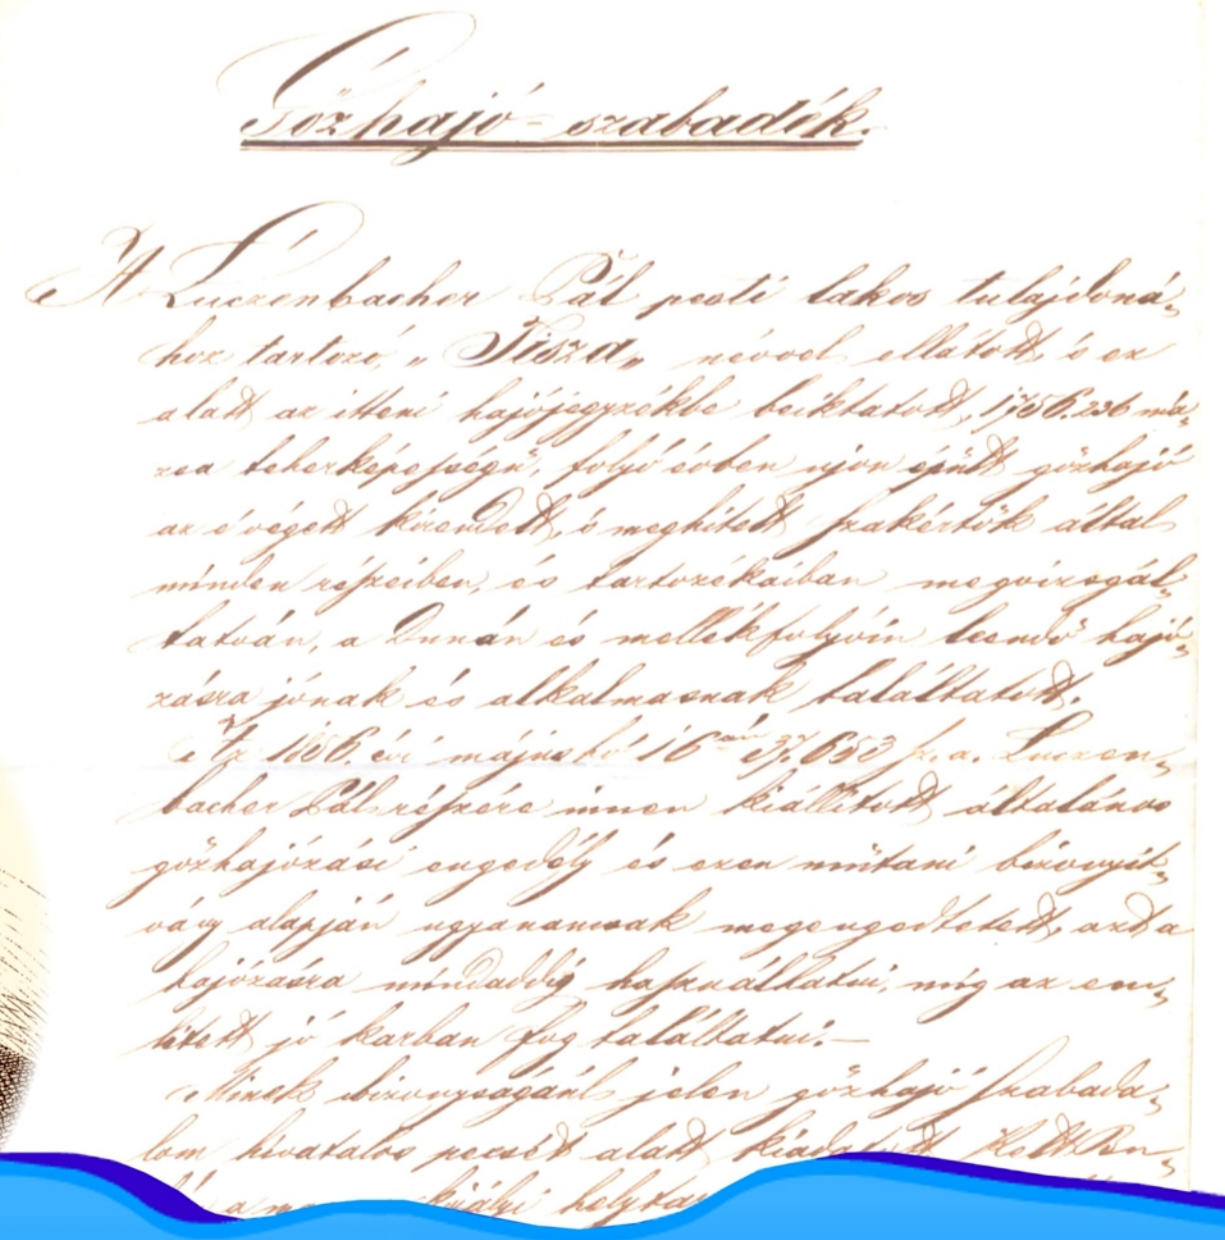 Gőzhajó-szabadék.
A Luczenbacher Pál pesti lakos tulajdoná„
hoz tartozó, „Tisza„ névvel ellátott, s ez
alatt az itteni hajójegyzékbe beiktatott, 1756.236 má„
zsa teherképességü, folyó évben ujon épült gőzhajó
az e végett kirendelt, s meghitelt szakértők által
minden részeiben, és tartozékaiban megvizsgál„
tatván, a Dunán és mellékfolyóin leendő hajó„
zásra jónak és alkalmasnak találtatott.
Az 1856. évi május hó 16án 37.653 sz. a. Luczen„
bacher Pál részére innen kiállított általános
gőzhajózási engedély és ezen műtani bizonyít„
vány alapján ugyanannak megengedtetett, azt a
hajózásra mindaddig használhatni, míg az em„
litett jó karban fog találtatni.—
Minek bizonyságául jelen gőzhajó szabada„
lom hivatalos pecsét alatt kiadatott. Kelt Bu„
a királyi